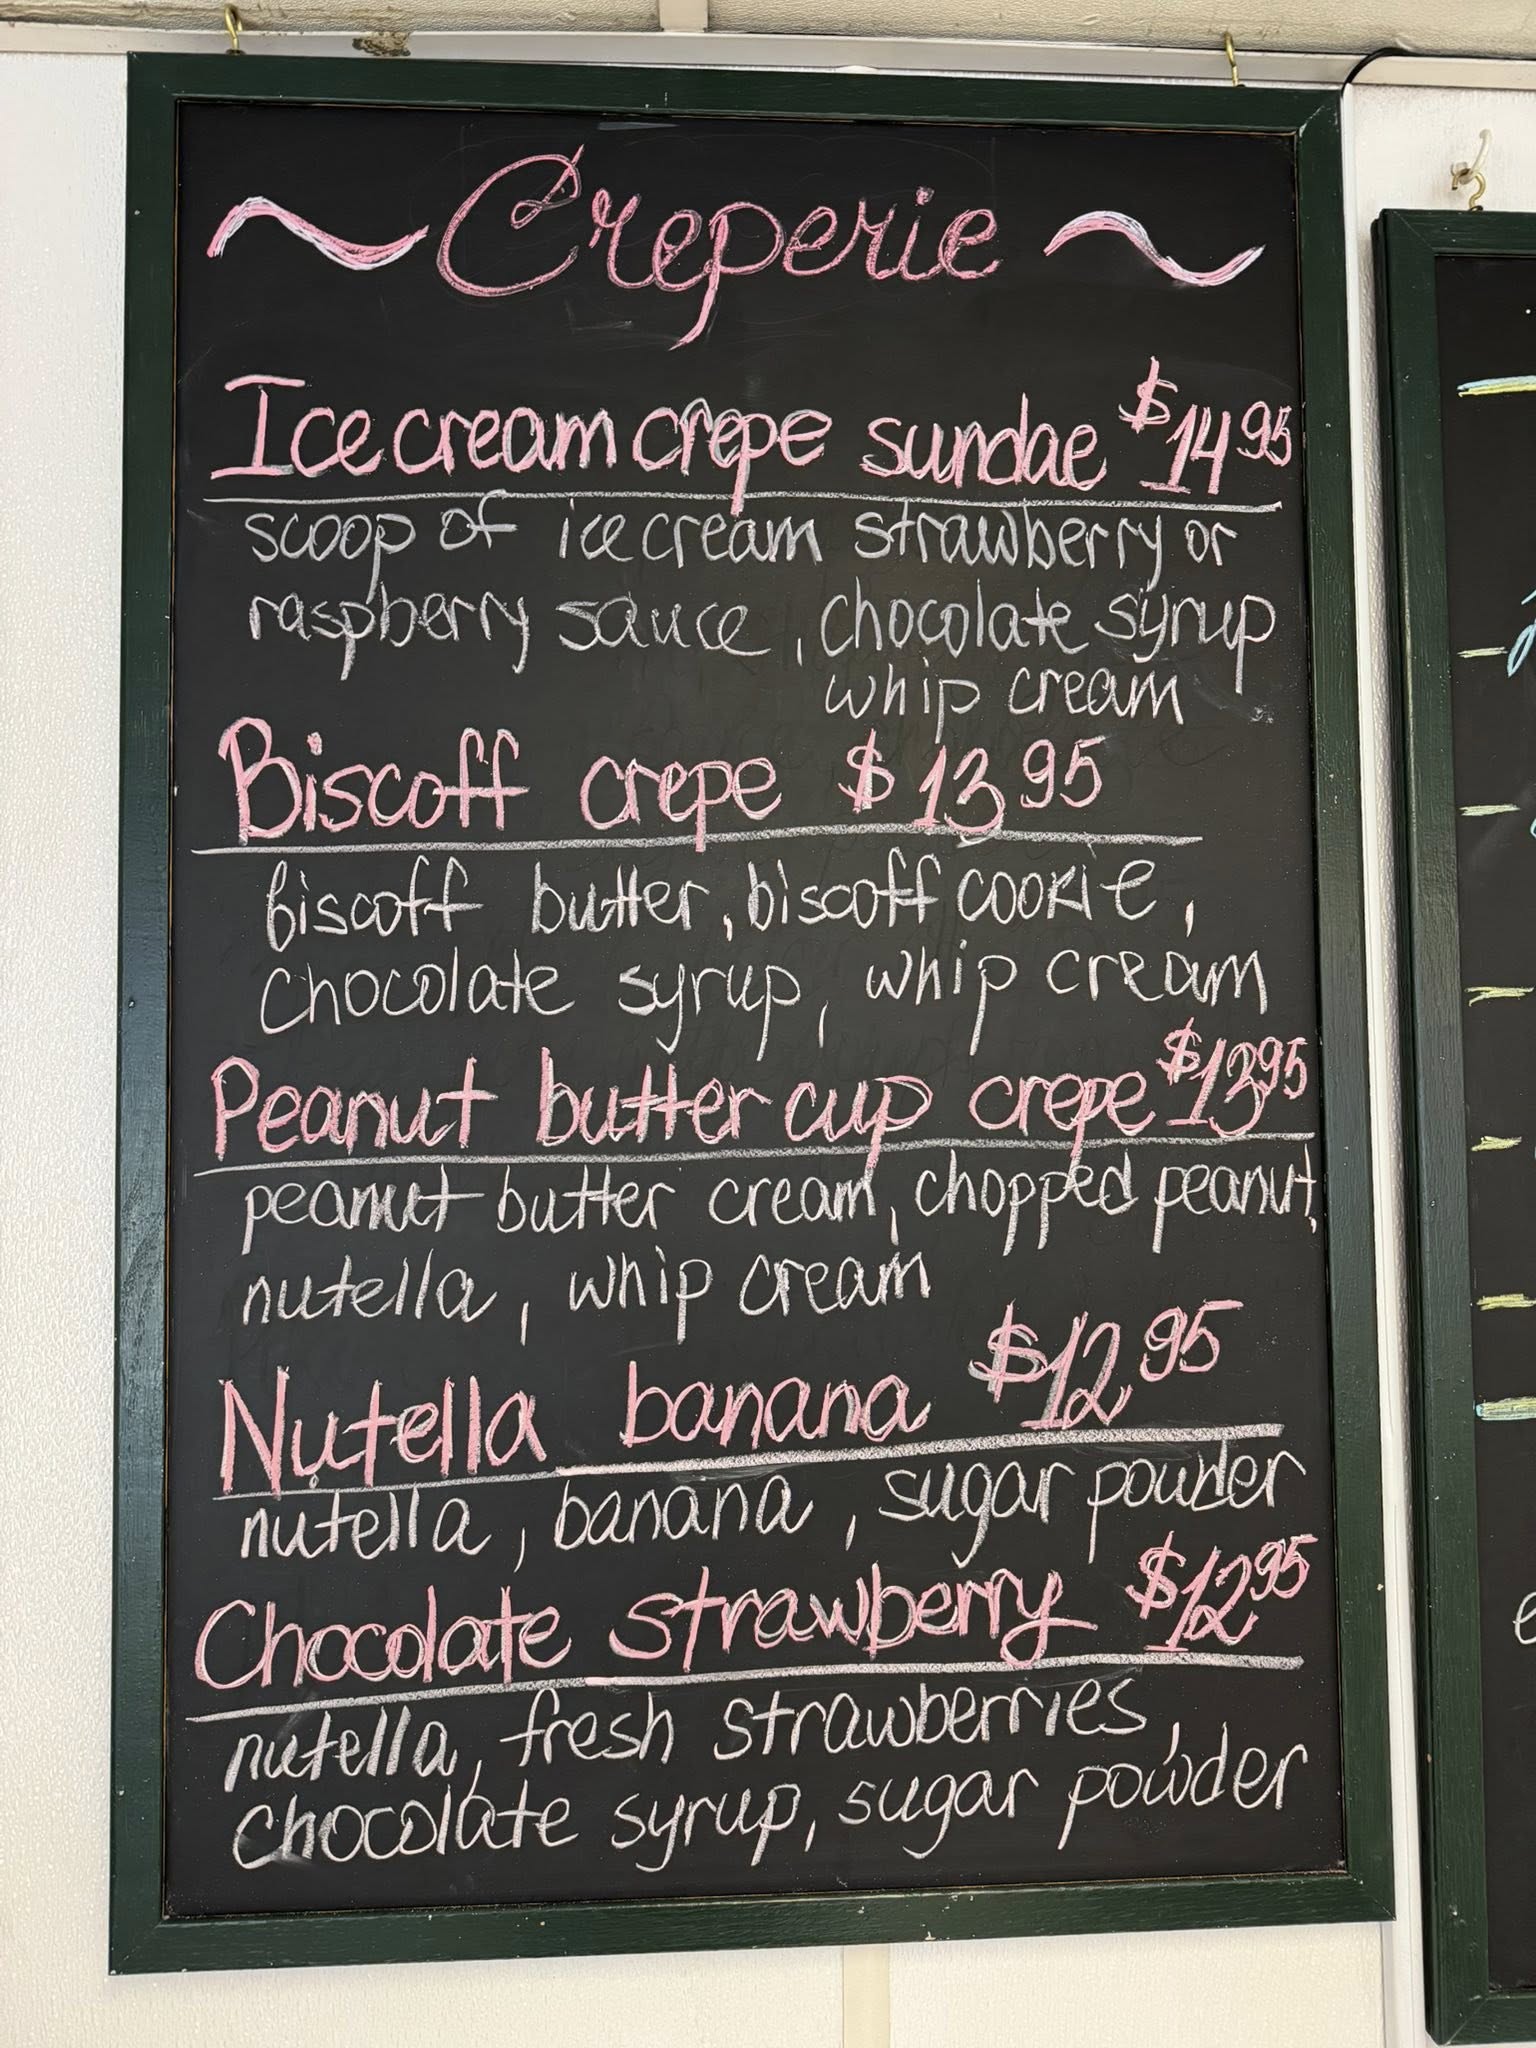 ~ Creperie ~
Ice cream crepe sundae $14.95
scoop of ice cream strawberry or
raspberry sauce, chocolate syrup
whip cream
Biscoff crepe $13.95
biscoff butter, biscoff cookie,
chocolate syrup, whip cream
Peanut butter cup crepe $13.95
peanut butter cream, chopped peanut,
nutella, whip cream
Nutella banana $12.95
nutella, banana, sugar powder
Chocolate strawberry $12.95
nutella, fresh strawberries,
chocolate syrup, sugar powder